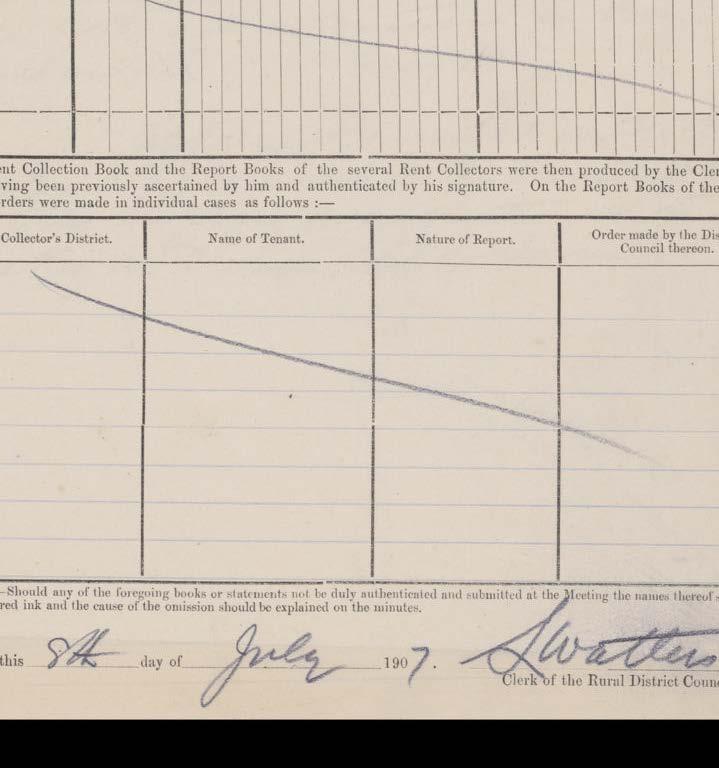 nt Collection Book and the Report Books of the several Rent Collectors were then produced by the Cler
ving been previously ascertained by him and authenticated by his signature. On the Report Books of the
rders were made in individual cases as follows :—
Collector's District. Name of Tenant. Nature of Report. Order made by the Dis
Council thereon.
—Should any of the foregoing books or statements not be duly authenticated and submitted at the Meeting the names thereof s
red ink and the cause of the omission should be explained on the minutes.
this 8th day of July 1907. S Watters
Clerk of the Rural District Counc